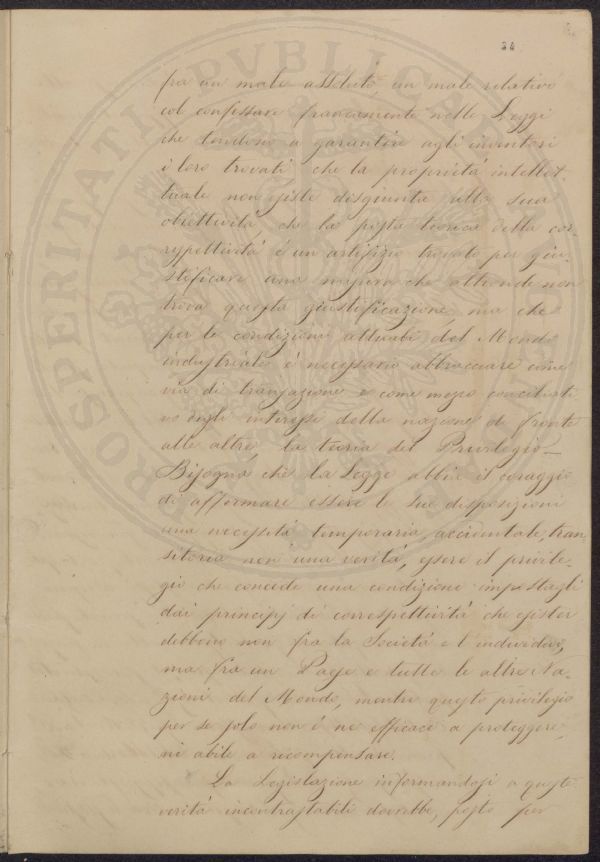 34
fra un male assoluto un male relativo
col confessare francamente nelle Leggi
che tendono a garantire agli inventori
i loro trovati che la proprietà intellet-
tuale non esiste disgiunta dalla sua
obiettività che la posta teorica della cor-
respettività è un artifizio trovato per giu-
stificare una misura che altronde non
trova questa giustificazione, ma che
per le condizioni attuali del Mondo
industriale è necessario abbracciare come
via di transazione e come mezzo conciliati-
vo degli interessi della nazione di fronte
alle altre, la teoria del Privilegio_
Bisogna che la Legge abbia il coraggio
di affermare essere le sue disposizioni
una necessità temporaria, accidentale, tran-
sitoria non una verità, essere il privile-
gio che concede una condizione impostagli
dai principj di correspettività che esister
debbono non fra la Società e l'individuo,
ma fra un Paese e tutte le altre Na-
zioni del Mondo, mentre questo privilegio
per se solo non è nè efficace a proteggere,
nè abile a ricompensare.
La Legislazione informandosi a queste
verità incontrastabili dovrebbe, posto per
PROSPERITATI PVBLICAE